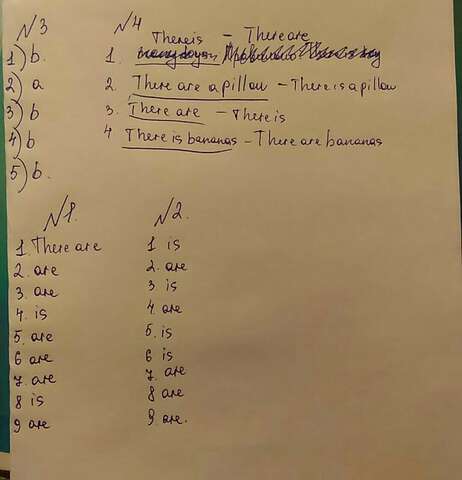 №3
1) b.
2) a
3) b
4) b
5) b.
№4
There is - There are
1.
2. There are a pillow - There is a pillow
3. There are - There is
4 There is bananas - There are bananas
№1.
1. There are
2. are
3. are
4. is
5. are
6 are
7. are
8 is
9 are
№2.
1 is
2. are
3 is
4. are
5. is
6 is
7. are
8 are
9. are.